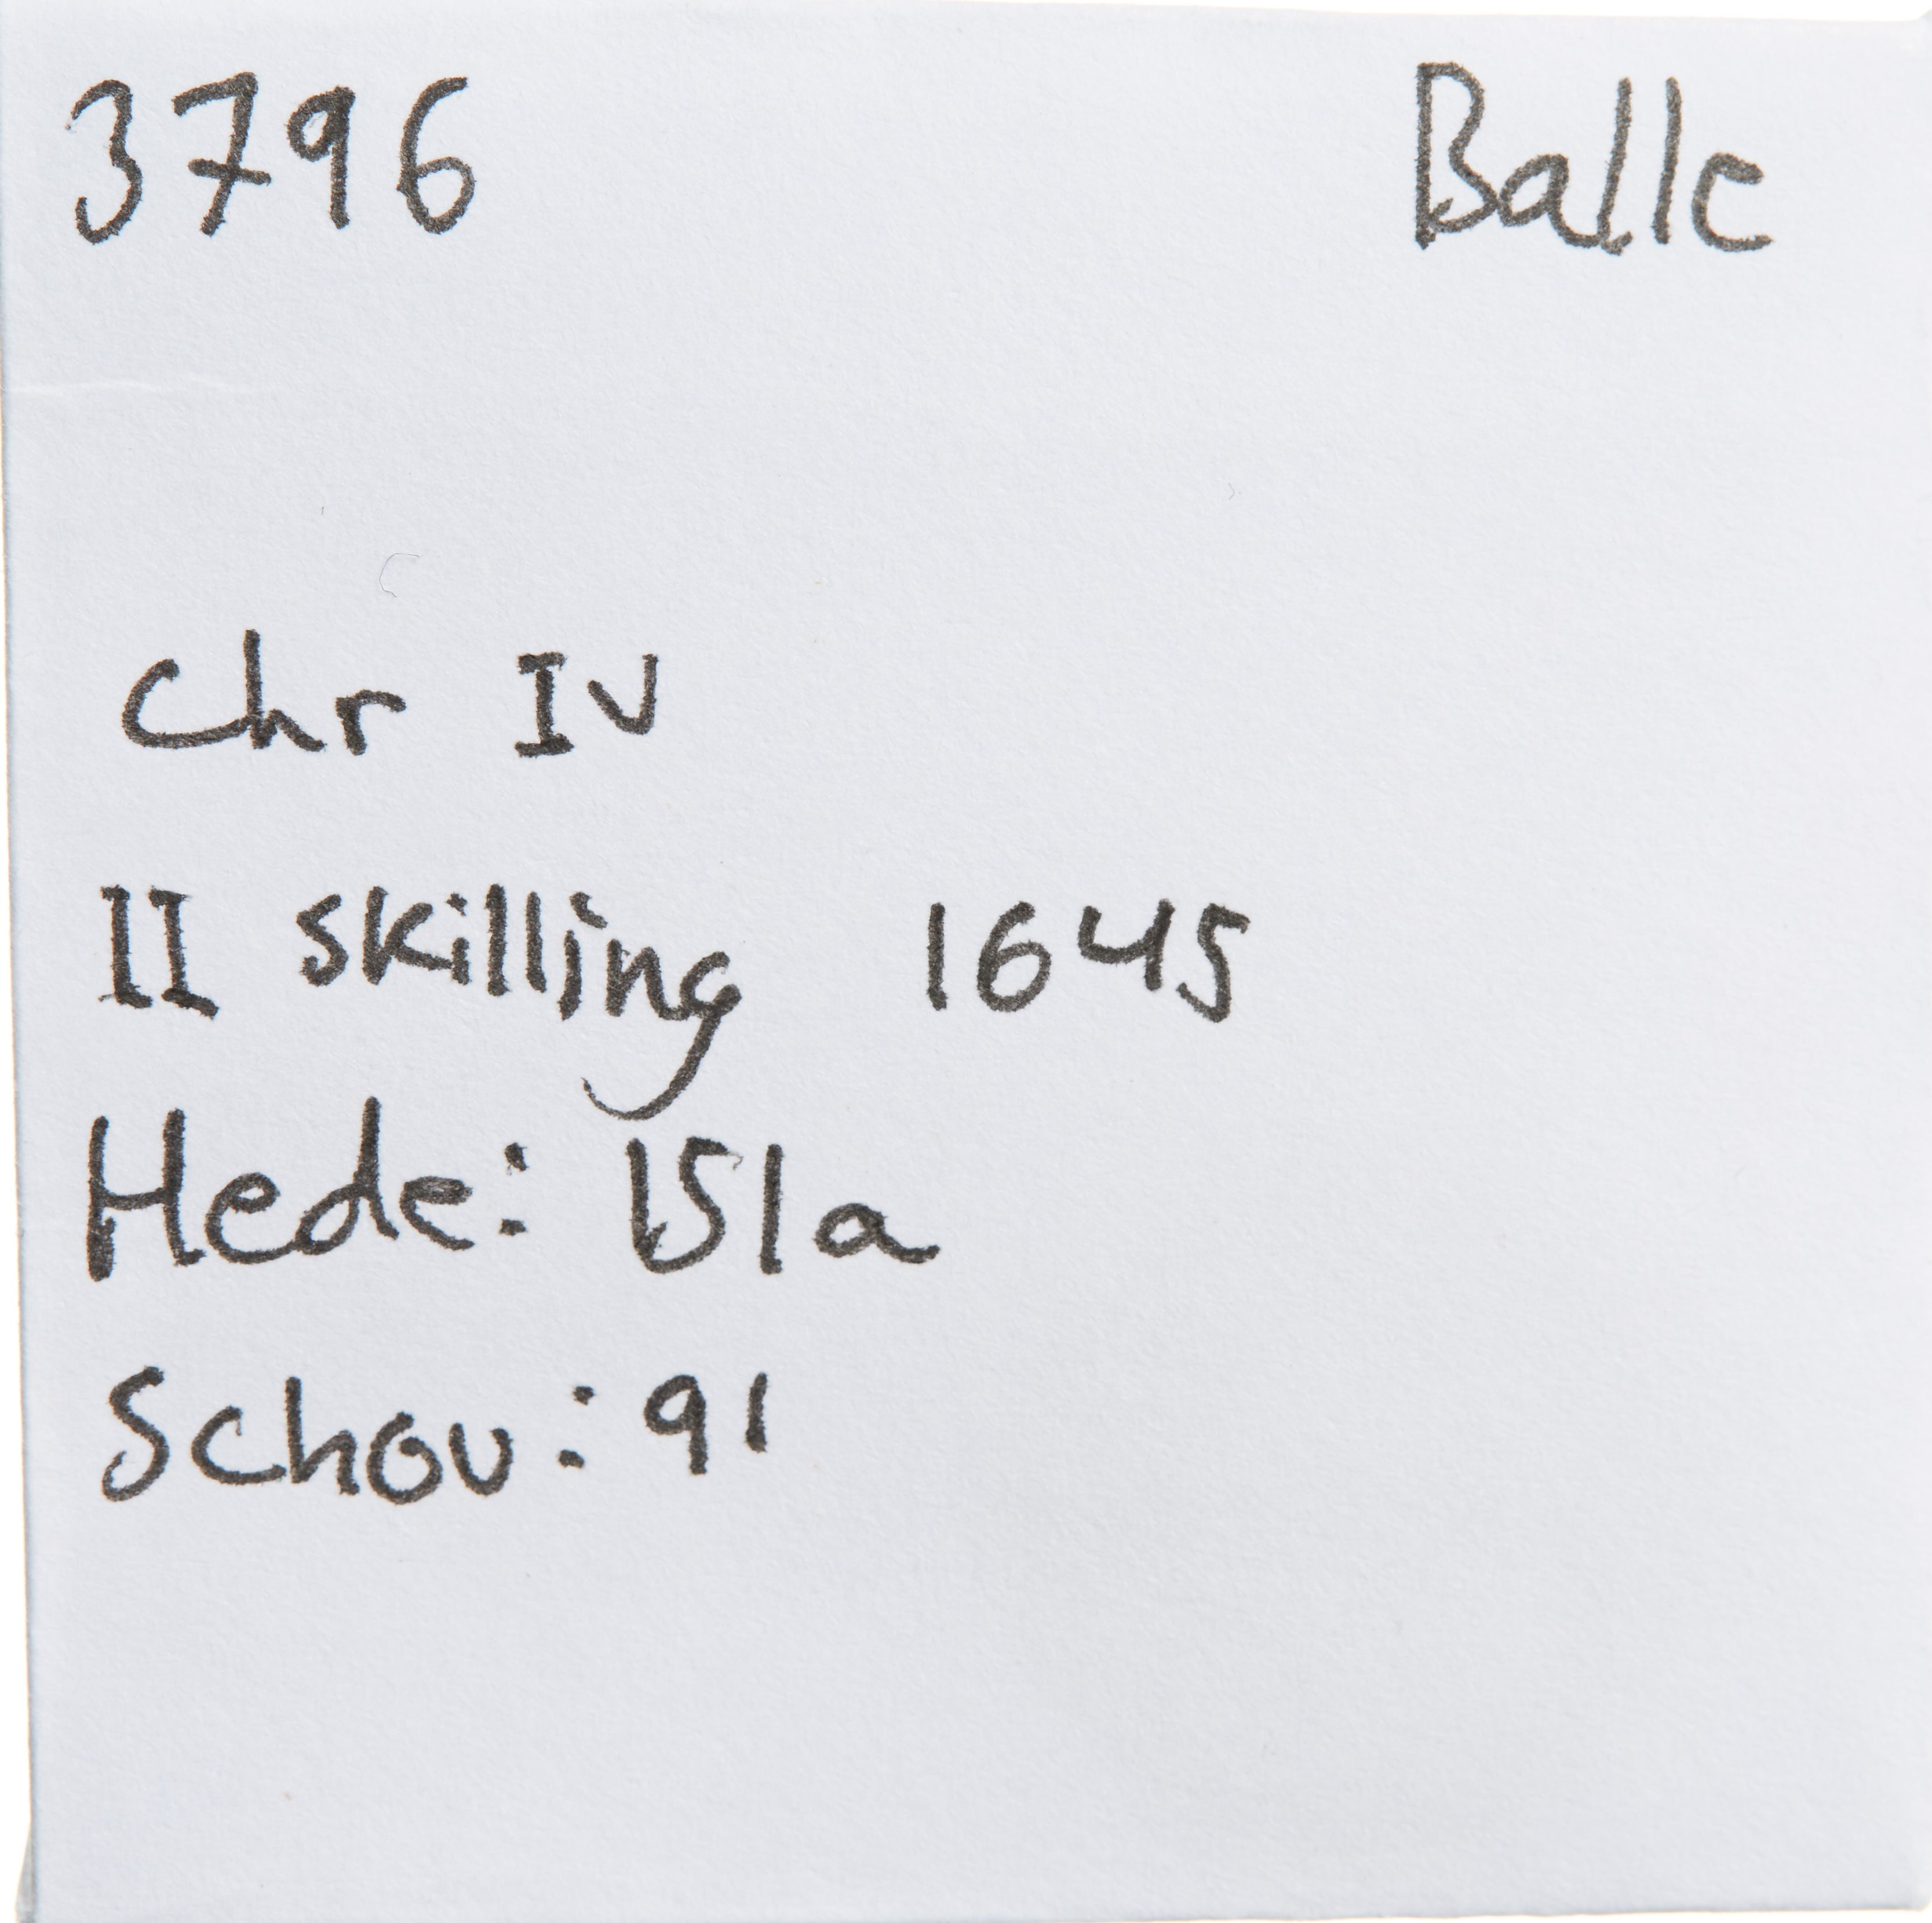 3796 Balle
Chr IV
II skilling 1645
Hede: 151a
Schou: 91